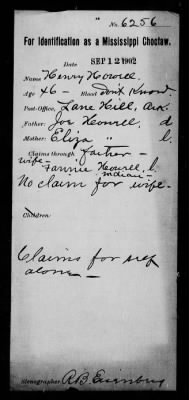 No. 6256
For Identification as a Mississippi Choctaw.
Date SEP 12 1902
Name Henry Howell,
Age 46 - Blood Don't Know.
Post-Office, Lane Hill, Ark.
Father: Joe Howell, d
Mother: Eliza " l.
Claims through father -
wife - Fannie Howell, l.
Indian -
No claim for wife -
Children:
Claims for self
alone -
Stenographer